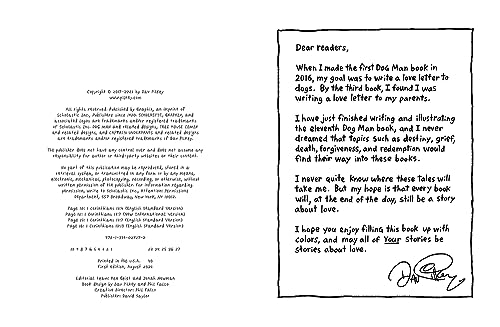 Copyright © 2017-2023 by Dav Pilkey
www.pilkey.com
All rights reserved. Published by Graphix, an imprint of
Scholastic Inc., Publishers since 1920. SCHOLASTIC, GRAPHIX, and
associated logos are trademarks and/or registered trademarks
of Scholastic Inc. DOG MAN and related designs, TREE HOUSE COMIX
and related designs, and CAPTAIN UNDERPANTS and related designs
are trademarks and/or registered trademarks of Dav Pilkey.
The publisher does not have any control over and does not assume any
responsibility for author or third-party websites or their content.
No part of this publication may be reproduced, stored in a
retrieval system, or transmitted in any form or by any means,
electronic, mechanical, photocopying, recording, or otherwise, without
written permission of the publisher. For information regarding
permission, write to Scholastic Inc., Attention: Permissions
Department, 557 Broadway, New York, NY 10012.
(English Standard Version)
(New International Version)
(English Standard Version)
(English Standard Version)
Printed in the U.S.A.
First edition, August
Editorial team: Ken Geist and Jonah Newman
Book design by Dav Pilkey and Phil Falco
Creative director: Phil Falco
Publisher: David Saylor
Dear readers,
When I made the first Dog Man book in
2016, my goal was to write a love letter to
dogs. By the third book, I found I was
writing a love letter to my parents.
I have just finished writing and illustrating
the eleventh Dog Man book, and I never
dreamed that topics such as destiny, grief,
death, forgiveness, and redemption would
find their way into these books.
I never quite know where these tales will
take me. But my hope is that every book
will, at the end of the day, still be a story
about love.
I hope you enjoy filling this book up with
colors, and may all of Your stories be
stories about love.
Dav Pilkey